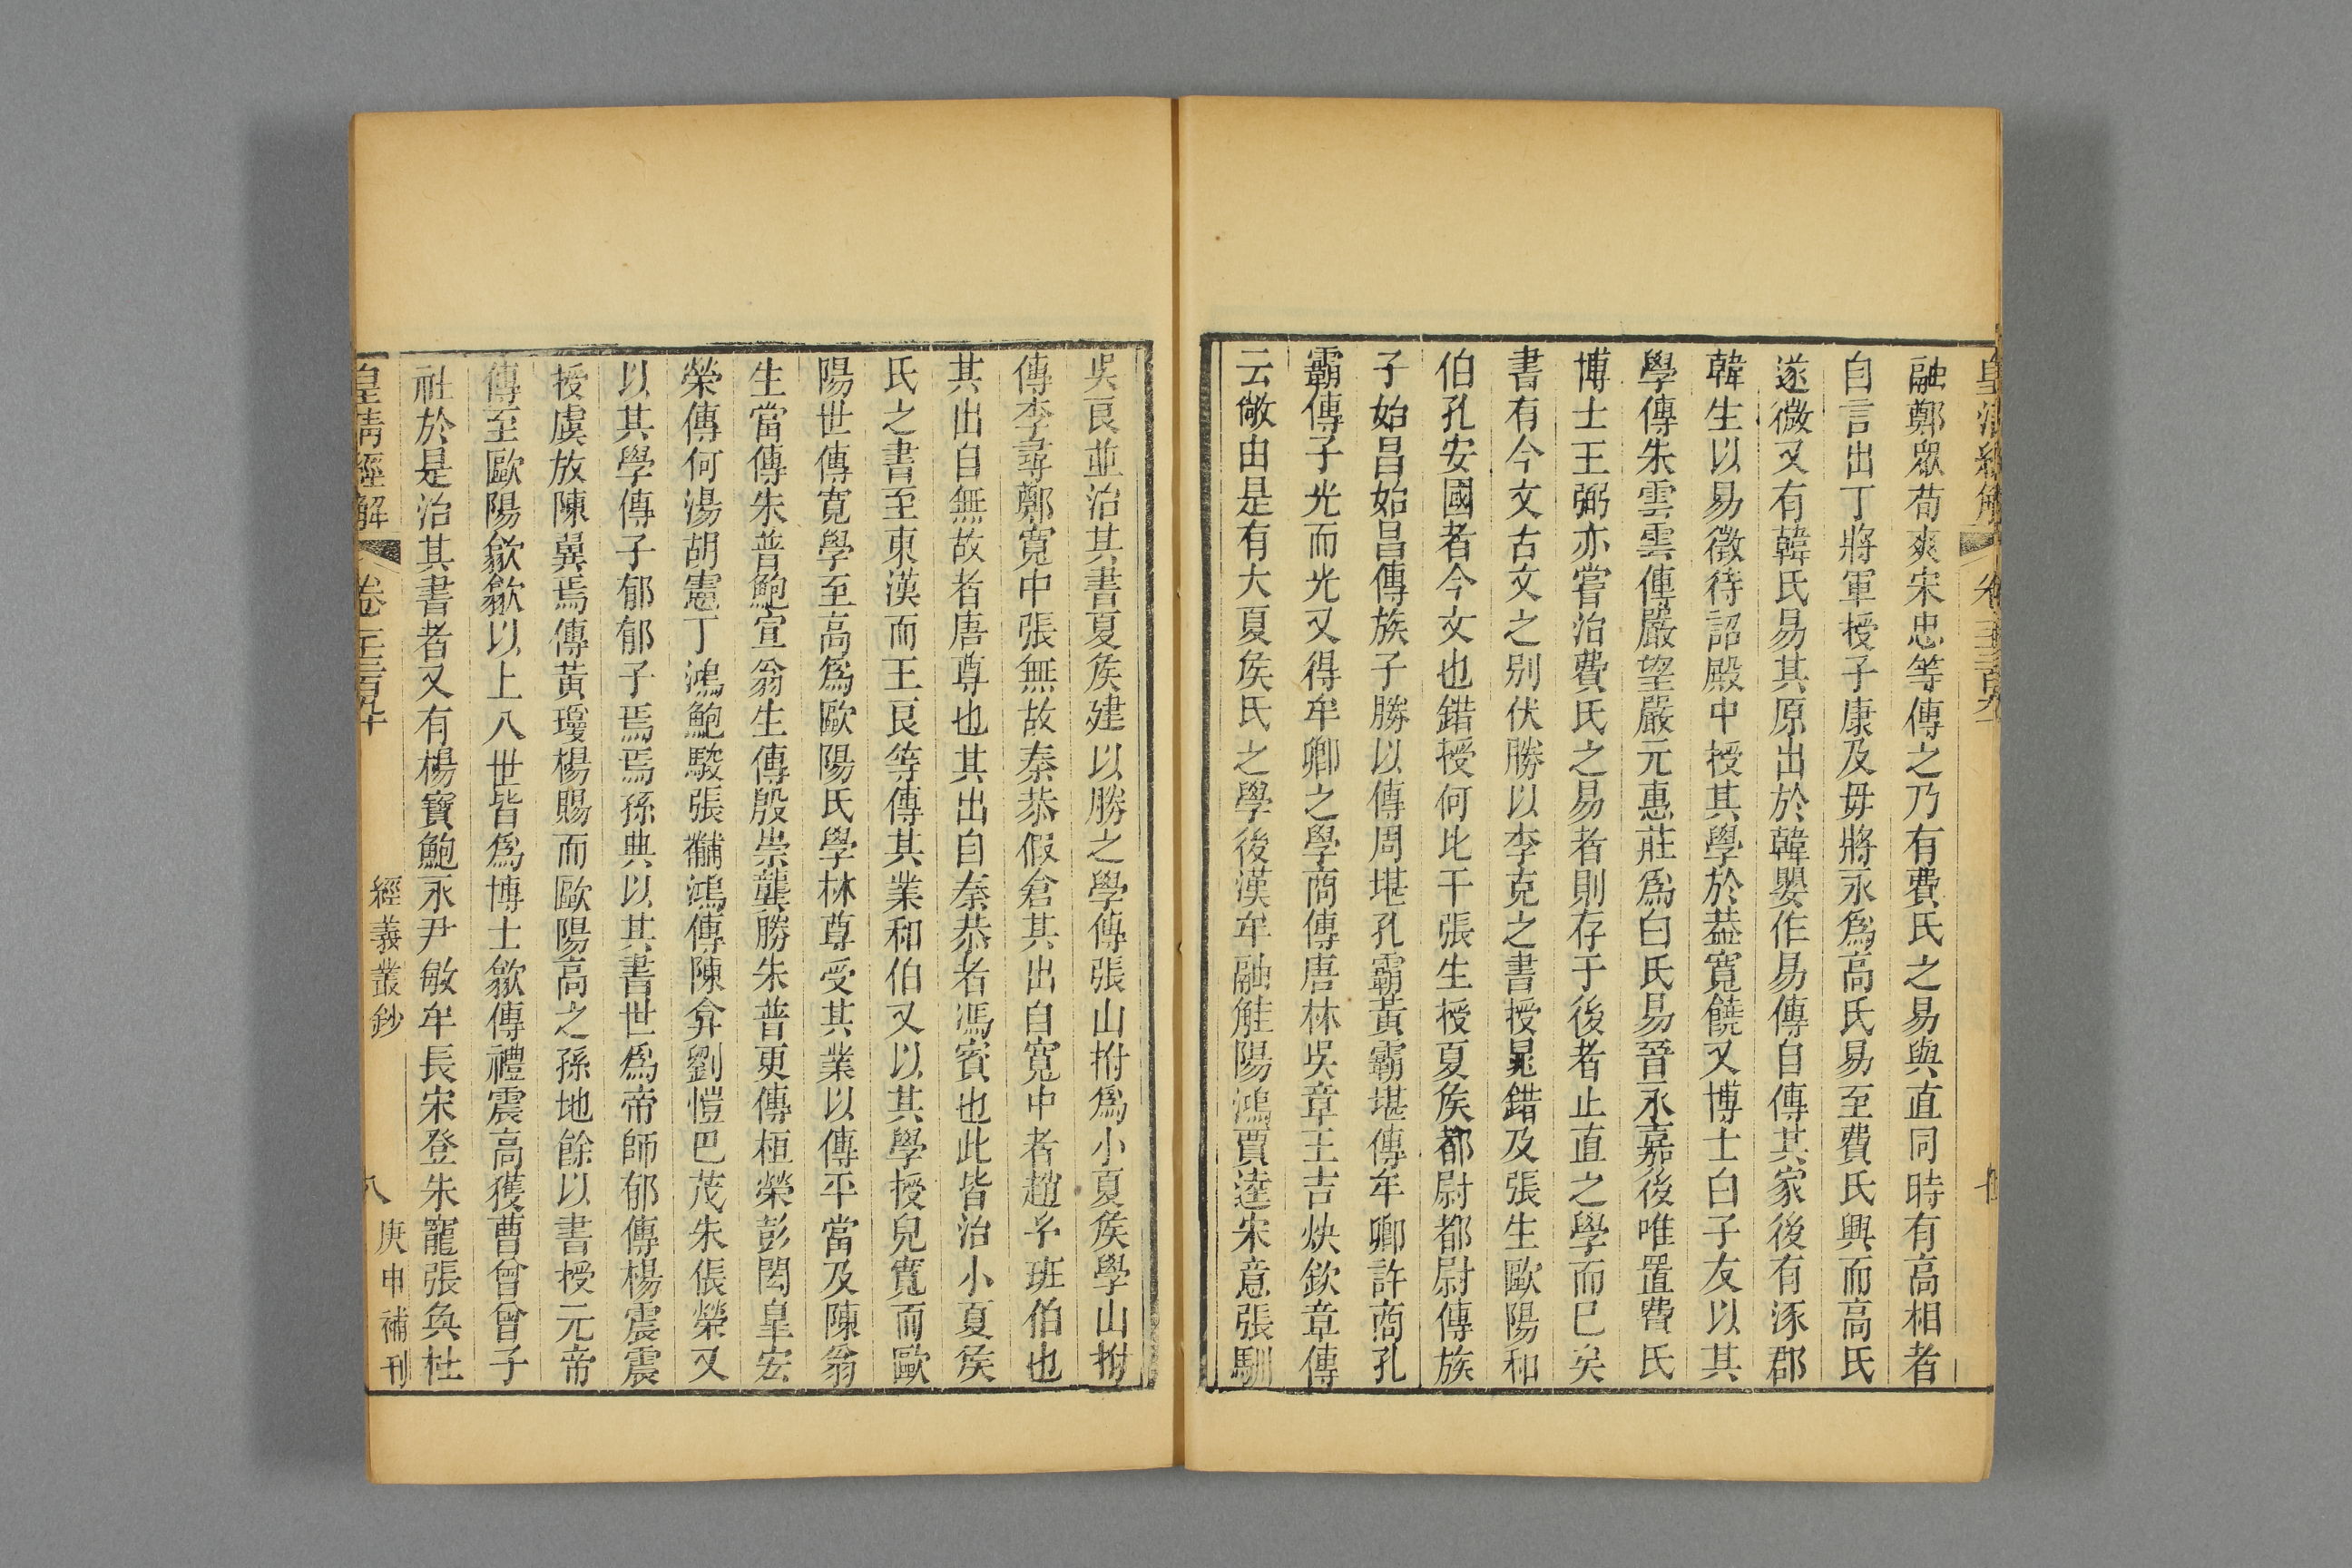 融鄭眾荀爽宋忠等傳之乃有費氏之易與直同時有高相者
自言出丁將軍授子康及毋將永爲高氏易至費氏興而高氏
遂微又有韓氏易其原出於韓嬰作易傳自傳其家後有涿郡
韓生以易徵待詔殿中授其學於葢寬饒又博士白子友以其
學傳朱雲雲傳嚴望嚴元惠莊爲白氏易晉永嘉後唯置費氏
博士王弼亦嘗治費氏之易者則存于後者止直之學而巳矣
書有今文古文之別伏勝以李克之書授晁錯及張生歐陽和
伯孔安國者今文也錯授何比干張生授夏矦都尉都尉傳族
子始昌始昌傳族子勝以傳周堪孔霸黃霸堪傳牟卿許商孔
霸傳子光而光又得牟卿之學商傳唐林吳章王吉炔欽章傳
云敞由是有大夏矦氏之學後漢牟融觟陽鴻賈逵宋意張馴
吳良並治其書夏矦建以勝之學傳張山拊爲小夏矦學山拊
傳李尋鄭寬中張無故秦恭假倉其出自寬中者趙玄班伯也
其出自無故者唐尊也其出自秦恭者馮賓也此皆治小夏矦
氏之書至東漢而王良等傳其業和伯又以其學授兒寬而歐
陽世傳寬學至高爲歐陽氏學林尊受其業以傳平當及陳翁
生當傳朱普鮑宣翁生傳殷崇龔勝朱普更傳桓榮彭閎皇宏
榮傳何湯胡憲丁鴻鮑駿張酺鴻傳陳弇劉愷巴茂朱倀榮又
以其學傳子郁郁子焉焉孫典以其書世爲帝師郁傳楊震震
授虞放陳翼焉傳黃瓊楊賜而歐陽高之孫地餘以書授元帝
傳至歐陽歙歙以上八世皆爲博士歙傳禮震高獲曹曾曾子
祉於是治其書者又有楊寶鮑永尹敏牟長宋登朱寵張奐杜
皇清經解 卷 經義叢鈔 八 庚申補刊